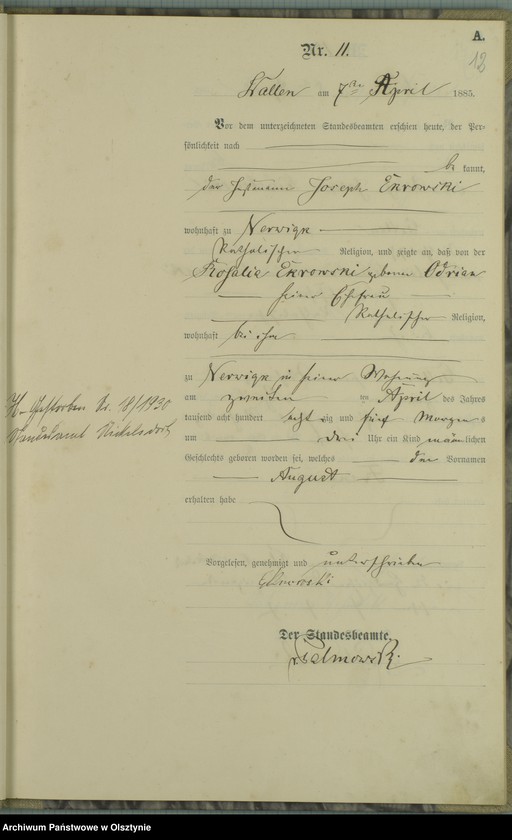 A.
12
Nr. 11.
Wallen am 7ten April 1885.
Vor dem unterzeichneten Standesbeamten erschien heute, der Per-
sönlichkeit nach
be kannt,
der Joseph Ekrowski
wohnhaft zu Nerwigk
Katholischer Religion, und zeigte an, daß von der
Rosalie Ekrowski geborene Odrian
seiner Ehefrau
Katholischer Religion,
wohnhaft bei ihm
zu Nerwigk in seiner Wohnung
am zweiten im April des Jahres
tausend acht hundert acht zig und fünf Morgens
um drei Uhr ein Kind männlichen
Geschlechts geboren worden sei, welches den Vornamen
August
erhalten habe
Vorgelesen, genehmigt und unterschrieben
Ekrowski
Der Standesbeamte.
Gestorben Nr. 18/1920
Standesamt Nickelsdorf
Archiwum Państwowe w Olsztynie